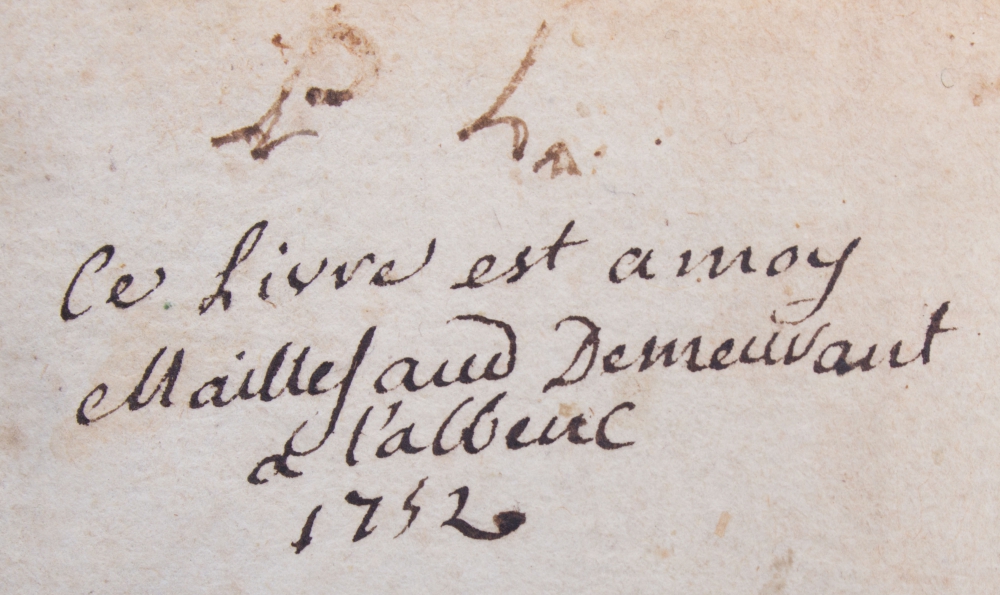 P
Ce Livre est a moy
Maillefaud Demeurant
a l'albenc
1752